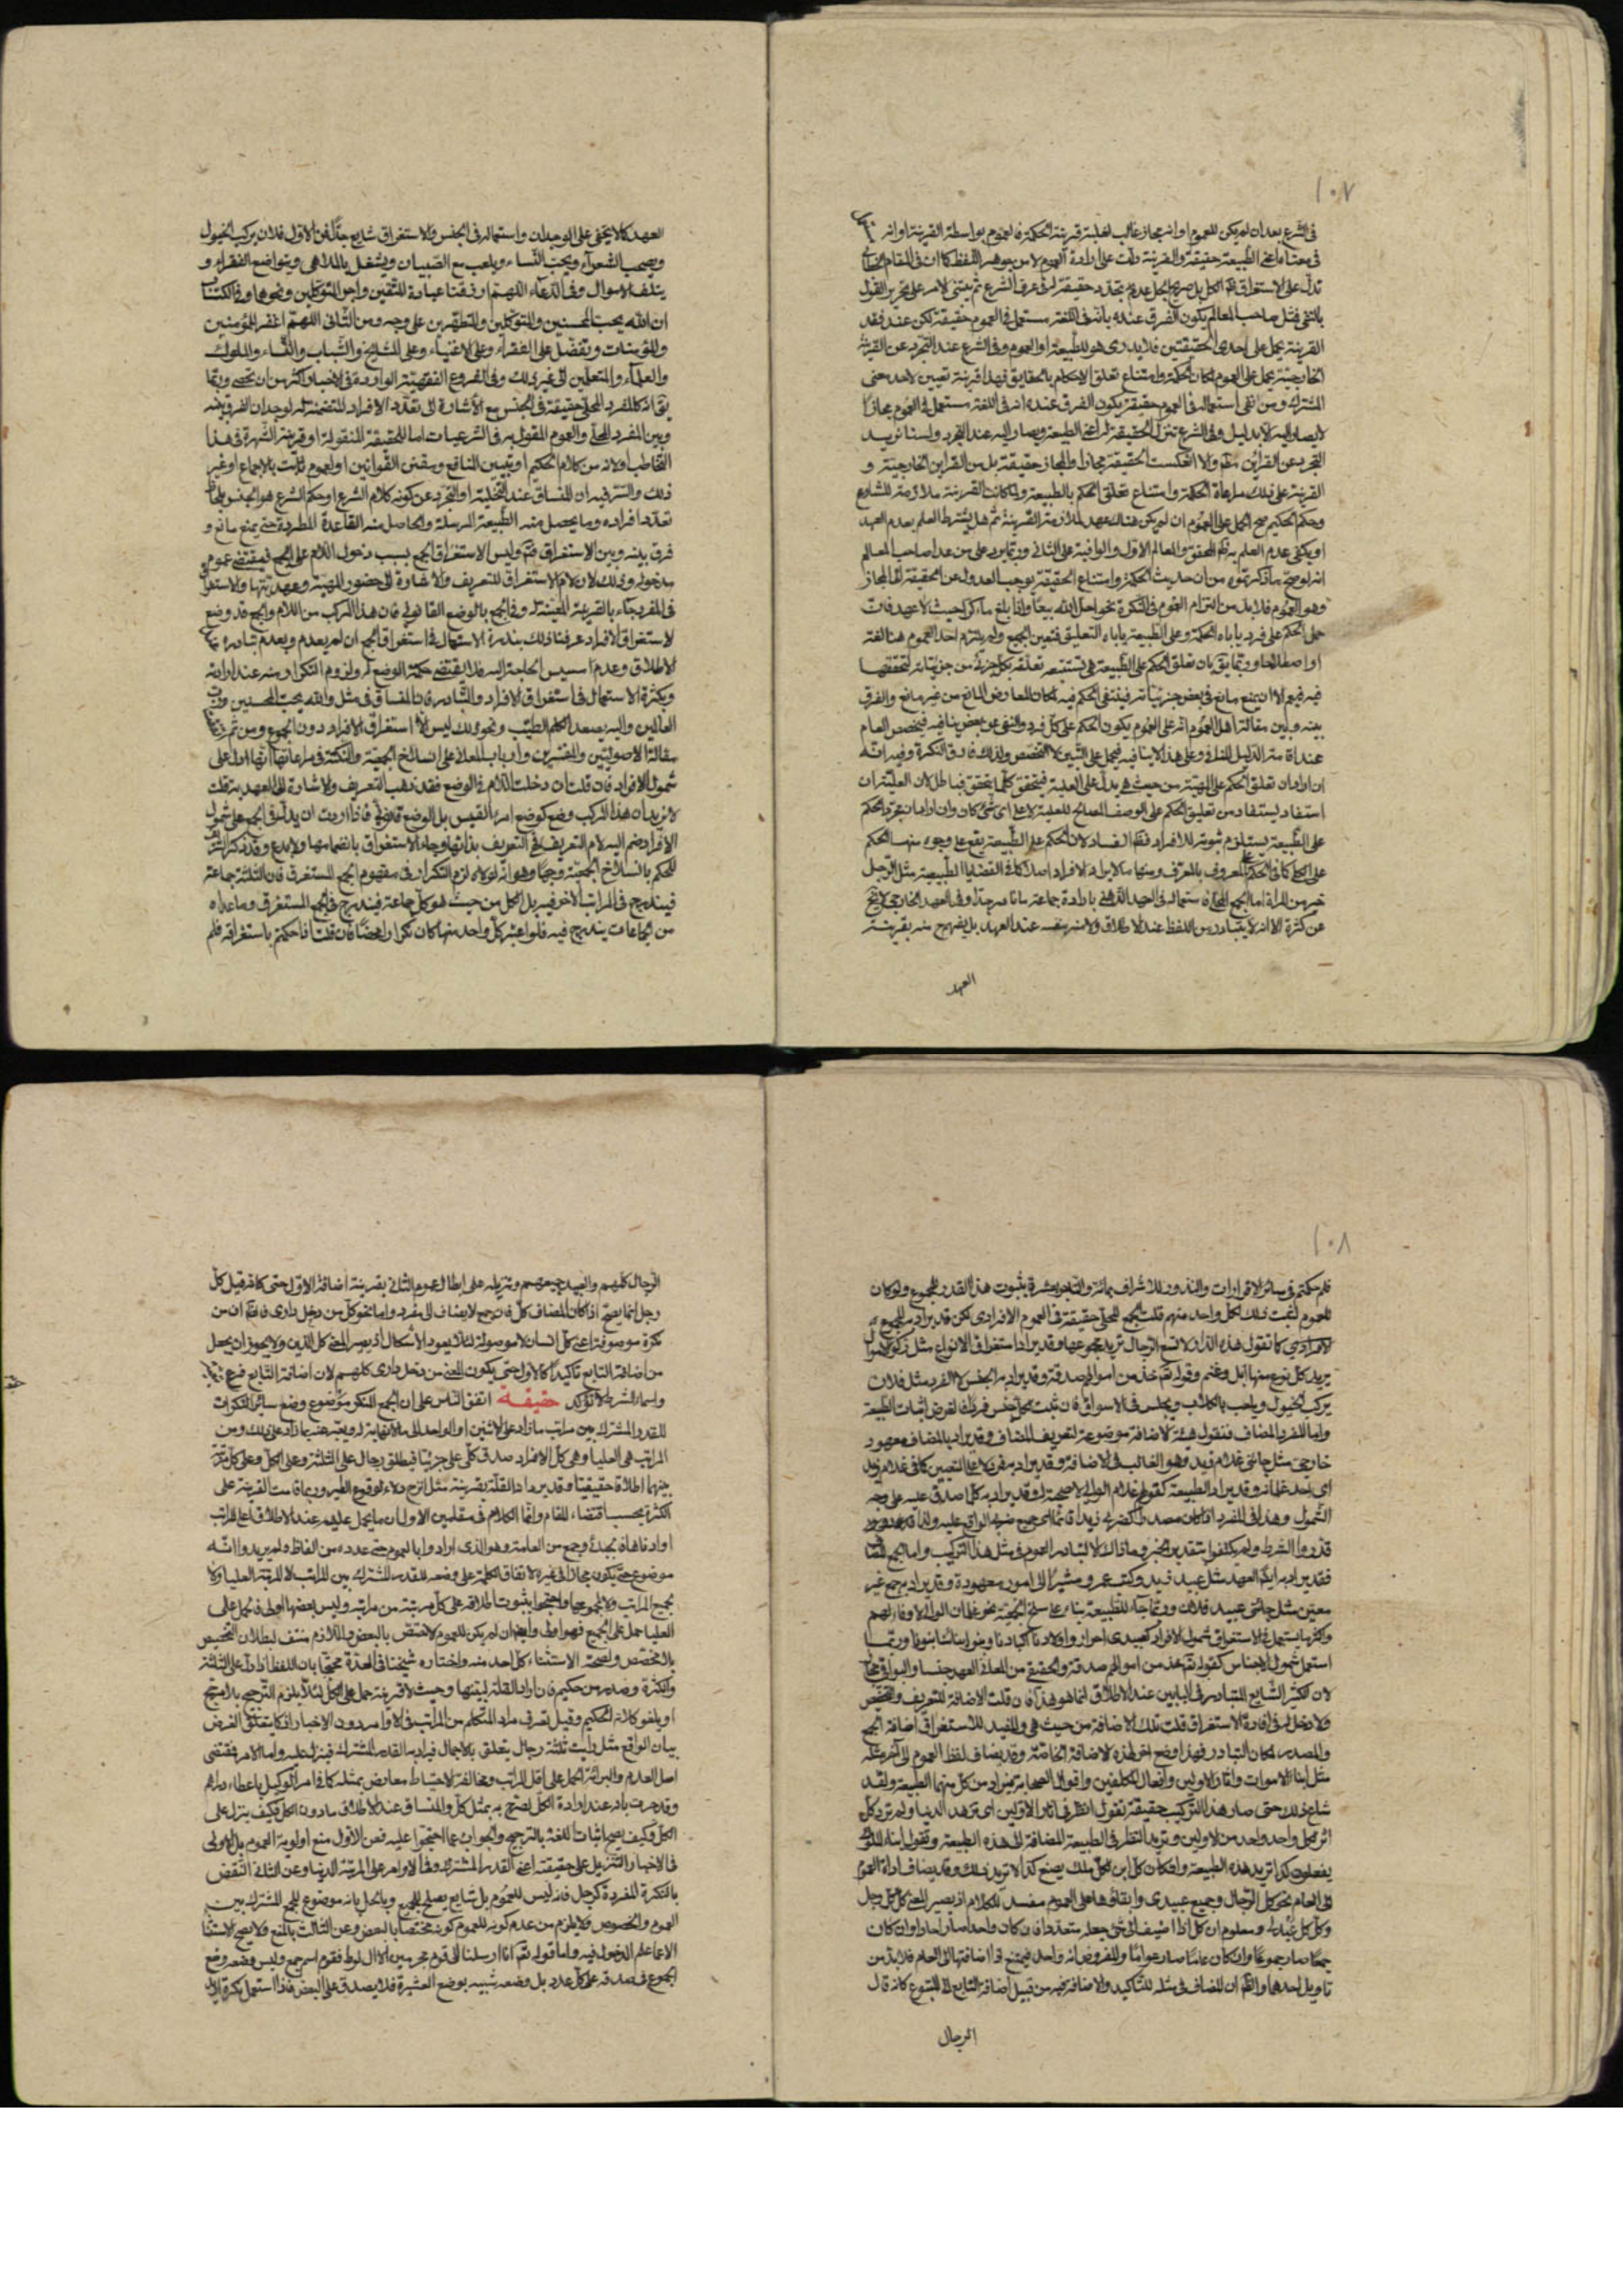 ١٠٧
في الشرع بعد ان لم يكن للعموم او انه مجاز غالب لغلبة قرينة الحكمة فالعموم بواسطة القرينة او انه
في معناه اعني الطبيعة حقيقة والقرينة دلت على ارادة العموم لا من جوهر اللفظ كما ان في المقام
تدل على الاستغراق
بالنفي فمثل صاحب المعالم يكون الفرق عنده بانه في اللغة مستعمل في العموم حقيقة لكن عند فقد
القرينة يحمل على احدى الحقيقتين فلا يدرى هو للطبيعة او العموم وفي الشرع عند التجرد عن القرينة
الخارجية يحمل على العموم لمكان الحكمة وامتناع تعلق الاحكام بالحقايق فهذا قرينة تعيين لاحد معنى
المشترك ومن انفى استعماله في العموم حقيقة يكون الفرق عنده انه في اللغة مستعمل في العموم مجازا
لا يصار اليه الا بدليل وفي الشرع تنزل الحقيقة اعني الطبيعة ويصار اليه عند التجرد ولسنا نريد
التجرد عن القراين والا انعكست الحقيقة مجازا والمجاز حقيقة بل من القراين الخارجية و
القرينة على ذلك مراعاة الحكمة وامتناع تعلق الحكم بالطبيعة ولما كانت القرينة ملازمة للشارع
وحكم الحكيم صح الحمل على العموم ان لم يكن هناك عهد لملازمة القرينة ثم هل يشترط العلم بعدم العهد
او يكفي عدم العلم به المحقق والمعالم الاول والوافية على الثاني وربما يرد على من عدا صاحب المعالم
انه لو صح ما ذكرتموه من ان حديث الحكمة وامتناع الحقيقة يوجب العدول عن الحقيقة الى المجاز
وهو العموم فلا بد من التزام العموم في النكرة نحو احل الله بيعا وانا بلغ ماء كرا حيث لا عهد فان
حمل الحكم على فرد ياباه الحكمة وعلى الطبيعة ياباه التعليق فتعين الجميع ولم يلتزم احد العموم هنا لغة
او اصطلاحا وربما يق بان تعلق الحكم على الطبيعة يستتبعه تعلقه بكل جزئي من جزئياته لتحققها
فيه فيعم الا ان يمنع مانع في بعض جزئياته فينتفي الحكم فيه لمكان المعارض المانع من غير مانع والفرق
بينه وبين مقالة اهل العموم انه على العموم يكون الحكم على كل فرد والنفي عن بعض ينافيه فيخصص العام
عند اقامة الدليل المنافي وعلى هذا لا ينافيه فيحمل على التبيين لا التخصيص ولذلك فارق النكرة وفيه انه
ان اراد ان تعلق الحكم على المهية من حيث هي يدل على العلية فيتحقق كلما يتحقق فباطل لان العلية ان
استفاد يستفاد من تعليق الحكم على الوصف الصالح للعلية لا على اي شيء كان وان اراد ان مجرد الحكم
على الطبيعة يستلزم ثبوته للافراد فظاهر الفساد لان الحكم على الطبيعة يقع على وجوه منها الحكم
على الكل كما في الحكم على المعروف بالمعرف ومنها ما لا يراد الافراد اصلا كما في القضايا الطبيعية مثل الرجل
خير من المراة اما الجمع المحلى فاستعماله في العهد الذهني بارادة جماعة ما نادر جدا وفي العهد الخارجي لا يخ
عن كثرة الا انه لا يتبادر من اللفظ عند الاطلاق ولا منه بنفسه عند العهد بل يفهم منه بقرينة
العهد
العهد كما لا يخفى على الوجدان واستعماله في الجنس والاستغراق شايع جدا فمن الاول فلان يركب الخيول
ويصحب الشعراء ويحب النساء ويلعب مع الصبيان ويشغل بالملاهي ويتواضع الفقراء و
يتلف الاموال وفي الدعاء اللهم ارزقنا عبادة المتقين واجر المتوكلين ونحوها وفي الكتاب
ان الله يحب المحسنين والمتوكلين والمتطهرين على وجه ومن الثاني اللهم اغفر للمؤمنين
والمؤمنات وتفضل على الفقراء وعلى الاغنياء وعلى المشايخ والشباب والنساء والملوك
والعلماء والمتعلمين الى غير ذلك وفي الفروع الفقهية الواردة في الاخبار اكثر من ان تحصى وربما
يق انه كالمفرد المحلى حقيقة في الجنس مع الاشارة الى تعدد الافراد المتضمنة له لوجدان الفرق بينه
وبين المفرد المحلى والعموم المقول به في الشرعيات اما للحقيقة المنقولة او قرينة الشهرة في هذا
التخاطب او لانه من كلام الحكيم او تعيين المنافع ومقنن القوانين او لعموم ثابت بالاجماع او غير
ذلك والسر فيه ان المنساق عند التخلية والتجرد عن كونه كلام الشرع او حكم الشرع هو الجنس بلحاظ
تعدد افراده وما يحصل منه الطبيعة المرسلة والحاصل منه القاعدة المطردة حتى يمنع مانع و
فرق بينه وبين الاستغراق ثم وليس الاستغراق الجمع بسبب دخول اللام على الجمع فيقتضي عموم
مدخوله وذلك لان لام الاستغراق للتعريف والاشارة الى حضور المهية وعهديتها والاستدلال
في المفرد جاء بالقرينة المعينة له وفي الجمع بالوضع القانوني فان هذا المركب من اللام والجمع قد وضع
لاستغراق الافراد عرفنا ذلك بندرة الاستعمال في استغراق الجمع ان لم يعدم وبعدم تبادره عند
الاطلاق وعدم مسيس الحاجة اليه فلا يقتضي حكمة الوضع له ولزوم التكرار منه عند ارادته
وبكثرة الاستعمال في استغراق الافراد والتبادر فان المنساق في مثل والله يحب المحسنين ورب
العالمين واليه يصعد الكلم الطيب ونحو ذلك ليس الا استغراق الافراد دون الجموع ومن ثم
مقالة الاصوليين والمفسرين وارباب المعاني على انسلاخ الجمعية والنكتة في مراعاتها انها ادل على
شمول الافراد فان قلت ان دخلت اللام في الوضع فقد ذهب التعريف والاشارة الى العهد به قلت
لا نريد ان هذا المركب وضع كوضع امرء القيس بل الوضع قانوني فاذا اردت ان يدل في الجمع على شمول
الافراد ضم اليه لام التعريف ففي التعريف بذاتها وجاء الاستغراق بانضمامها ولا بدع وقد ذكر
للحكم بانسلاخ الجمعية وجها وهو انه لولاه لزم التكرار في مفهوم الجمع المستغرق فان الثلثة جماعة
فيندرج في المراتب الاخر فيه بل الكل من حيث هو كل جماعة فيندرج في الجمع المستغرق وما عداه
من الجماعات يندرج فيه فلو اعتبر كل واحد منها كان تكرارا محضا فان قلت اذا حكمتم باستغراقه فلم
١٠٨
فلم حكمتم في سائر الاقرارات والنذور للاشراف بمائة والتجار بعشرة بثبوت هذا القدر للمجموع ولو كان
للعموم لثبت ذلك لكل واحد منهم قلت الجمع المحلى حقيقة في العموم الافرادي لكن قد يراد به المجموع
الافرادي كما تقول هذه الدار لا تسع الرجال تريد مجموعها وقد يراد استغراق الانواع مثل زكوة الاموال
يريد كل نوع منها ابل وغنم وقوله تعالى خذ من اموالهم صدقة وقد يراد به الجنس لا الفرد مثل فلان
يركب الخيول ويلعب بالكلاب ويجلس في الاسواق
واما المفرد المضاف فنقول هيئة الاضافة موضوعة لتعريف المضاف وقد يراد بالمضاف معهود
خارجي مثل جائني غلام زيد وهو الغالب في الاضافة وقد يراد به فرد لا على التعيين كما في غلام زيد
اي احد غلمانه وقد يراد الطبيعة كقولهم غلام الوالي لا صحبة له وقد يراد به كل ما صدق عليه على وجه
الشمول وهذا في المفرد اذا كان مصدرا كضربي زيدا قائما اي جميع ضربي الواقع عليه
قدروا الشرط ولم يكتفوا بتقدير الخبر وما ذاك الا لتبادر العموم في مثل هذا التركيب واما الجمع المضاف
فقد يراد به ايضا العهد مثل عبيد زيد وكتب عمرو مشيرا الى امور معهودة وقد يراد به جمع غير
معين مثل جائني عبيد فلان وربما جاء للطبيعة بناء على سلخ الجمعية نحو غلمان الوالي لا وفاء لهم
واكثر ما يستعمل في الاستغراق شمول الافراد كعبيدي احرار واولادنا اكبادنا وبنو ابنائنا بنونا وربما
استعمل شمول الاجناس كقوله تعالى خذ من اموالهم صدقة والحقيقي من المعاني العهد جنسا والبواقي مجاز
لان الكثير الشايع المتبادر في البابين عند الاطلاق انما هو هذا فان قلت الاضافة للتعريف والتخصيص
ولا دخل له في افادة الاستغراق قلت تلك الاضافة من حيث هي والمفيد للاستغراق اضافة الجمع
والمصدر لمكان التبادر فهذا وضع اخر لهذه الاضافة الخاصة وقد يضاف لفظ العموم الى اخر مثله
مثل ابناء الاموات واثار الاولين وافعال المكلفين واقوال الصحابة فيراد من كل منهما الطبيعة ولقد
شاع ذلك حتى صار هذا التركيب حقيقة تقول انظر في اثار الاولين اي تزهد الدنيا ولم ترد كل
اثر لكل واحد واحد من الاولين وتريد النظر في الطبيعة المضافة الى هذه الطبيعة وتقول ابناء الملوك
يفعلون كذا تريد هذه الطبيعة واذا كان كل ابن لكل ملك يصنع كذا لا تريد ذلك وقد يضاف اداة العموم
الى العام نحو كل الرجال وجميع عبيدي وابقاؤها على العموم مفسد للكلام اذ يصير المعنى كل كل رجل
وكل كل عبد له ومعلوم ان كل اذا اضيف الى شيء جعله متعددا فان كان واحدا صار احادا وان كان
جمعا صار جموعا وان كان عاما صار عواما والمفروض انه واحد فيمتنع اذا اضافتها الى العام فلا بد من
تاويل احدهما والظاهر ان المضاف في مثله للتاكيد والاضافة فيه من قبيل اضافة التابع الى المتبوع كانه قال
الرجال
الرجال كلهم والعبيد جميعهم وتنزيله على ابطال عموم الثاني بقرينة اضافة الاول حتى كانه قيل كل
رجل انما يصح اذا كان المضاف كل فان جمع لا يضاف الى مفرد واما نحو كل من دخل داري فالظاهر ان من
نكرة موصوفة اعني كل انسان لا موصولة لئلا يعود الاشكال اذ يصير المعنى كل الذين ولا يجوز ان يجعل
من اضافة التابع تاكيدا كالاول حتى يكون المعنى من دخل داري كلهم لان اضافة التابع فرع
واسماء الشرط لا تؤكد حقيقة اتفق الناس على ان الجمع المنكر موضوع وضع سائر النكرات
للقدر المشترك بين مراتب ما زاد على الاثنين او الواحد الى ما لا نهاية له ويعتبر عنه بما زاد على ذلك ومن
المراتب هي العليا وهي كل الافراد صدق كلي على جزئياته فيطلق رجال على الثلثة وعلى الكل وعلى كل مرتبة
بينهما اطلاقا حقيقيا وقد يراد القلة بقرينة مثل انزح دلاء لوقوع الطير وربما قامت القرينة على
الكثرة بحسب اقتضاء المقام وانما الكلام في مقامين الاول ان ما يحمل عليه عند الاطلاق اعلى المراتب
او ادناها ذهب جماعة وجمع من العامة وهو الذي ارادوا بالعموم حتى عدده من الفاظه ولم يريدوا انه
موضوع حتى يكون مجازا في غيره لاتفاق الكلمة على وضعه للقدر المشترك بين المراتب لا للمرتبة العليا ولا
لجميع المراتب ولا لمجموعها واحتجوا بثبوت اطلاقه على كل مرتبة من مراتبه وليس بعضها اولى فحمل على
العليا حمل على الجميع فهو اولى وايضا ان لم يكن للعموم لاختص بالبعض واللازم منتف لبطلان التخصيص
بلا مخصص ولصحة الاستثناء كل احد منه واختاره شيخنا في العدة محتجا بان اللفظ اذا دل على القلة
والكثرة وصدر من حكيم فان اراد القلة ليبينها وحيث لا قرينة حمل على الكل لئلا يلزم الترجيح بلا مرجح
او يلغو كلام الحكيم وقيل تعرف مراد المتكلم من المراتب في الاوامر دون الاخبار اذ كما يتعلق الغرض
بيان الواقع مثل رايت ثلثة رجال يتعلق بالاجمال فيراد به القدر المشترك فينزل عليه واما الامر فمقتضى
اصل العدم والبرائة الحمل على اقل المراتب ومخالفة الاحتياط معارض بمثله كما في امر الوكيل باعطاء دراهم
وقد جرت بانه عند ارادة الكل لصرح به بمثل كل والمنساق عند الاطلاق ما دون الكل فكيف ينزل على
الكل وكيف يصح اثبات اللغة بالترجيح والجواب عما احتجوا عليه فعن الاول منع اولوية العموم بل الاولى
في الاخبار التنزيل على حقيقته اعني القدر المشترك وفي الاوامر على المرتبة الدنيا وعن الثاني النقض
بالنكرة المفردة كرجل فانه ليس للعموم بل شايع يصلح للجميع وبالحل بانه موضوع للمشترك بين
العموم والخصوص فلا يلزم من عدم كونه للعموم كونه مختصا بالبعض وعن الثالث بالمنع فلا يصح الاستثناء
الا ما علم الدخول فيه واما قوله تعالى انا ارسلنا الى قوم مجرمين الا ال لوط فقوم اسم جمع وليس وضعه وضع
الجموع في صدقه على كل عدد بل وضعه شبيه بوضع العشيرة فلا يصدق على البعض فاذا استعمل نكرة